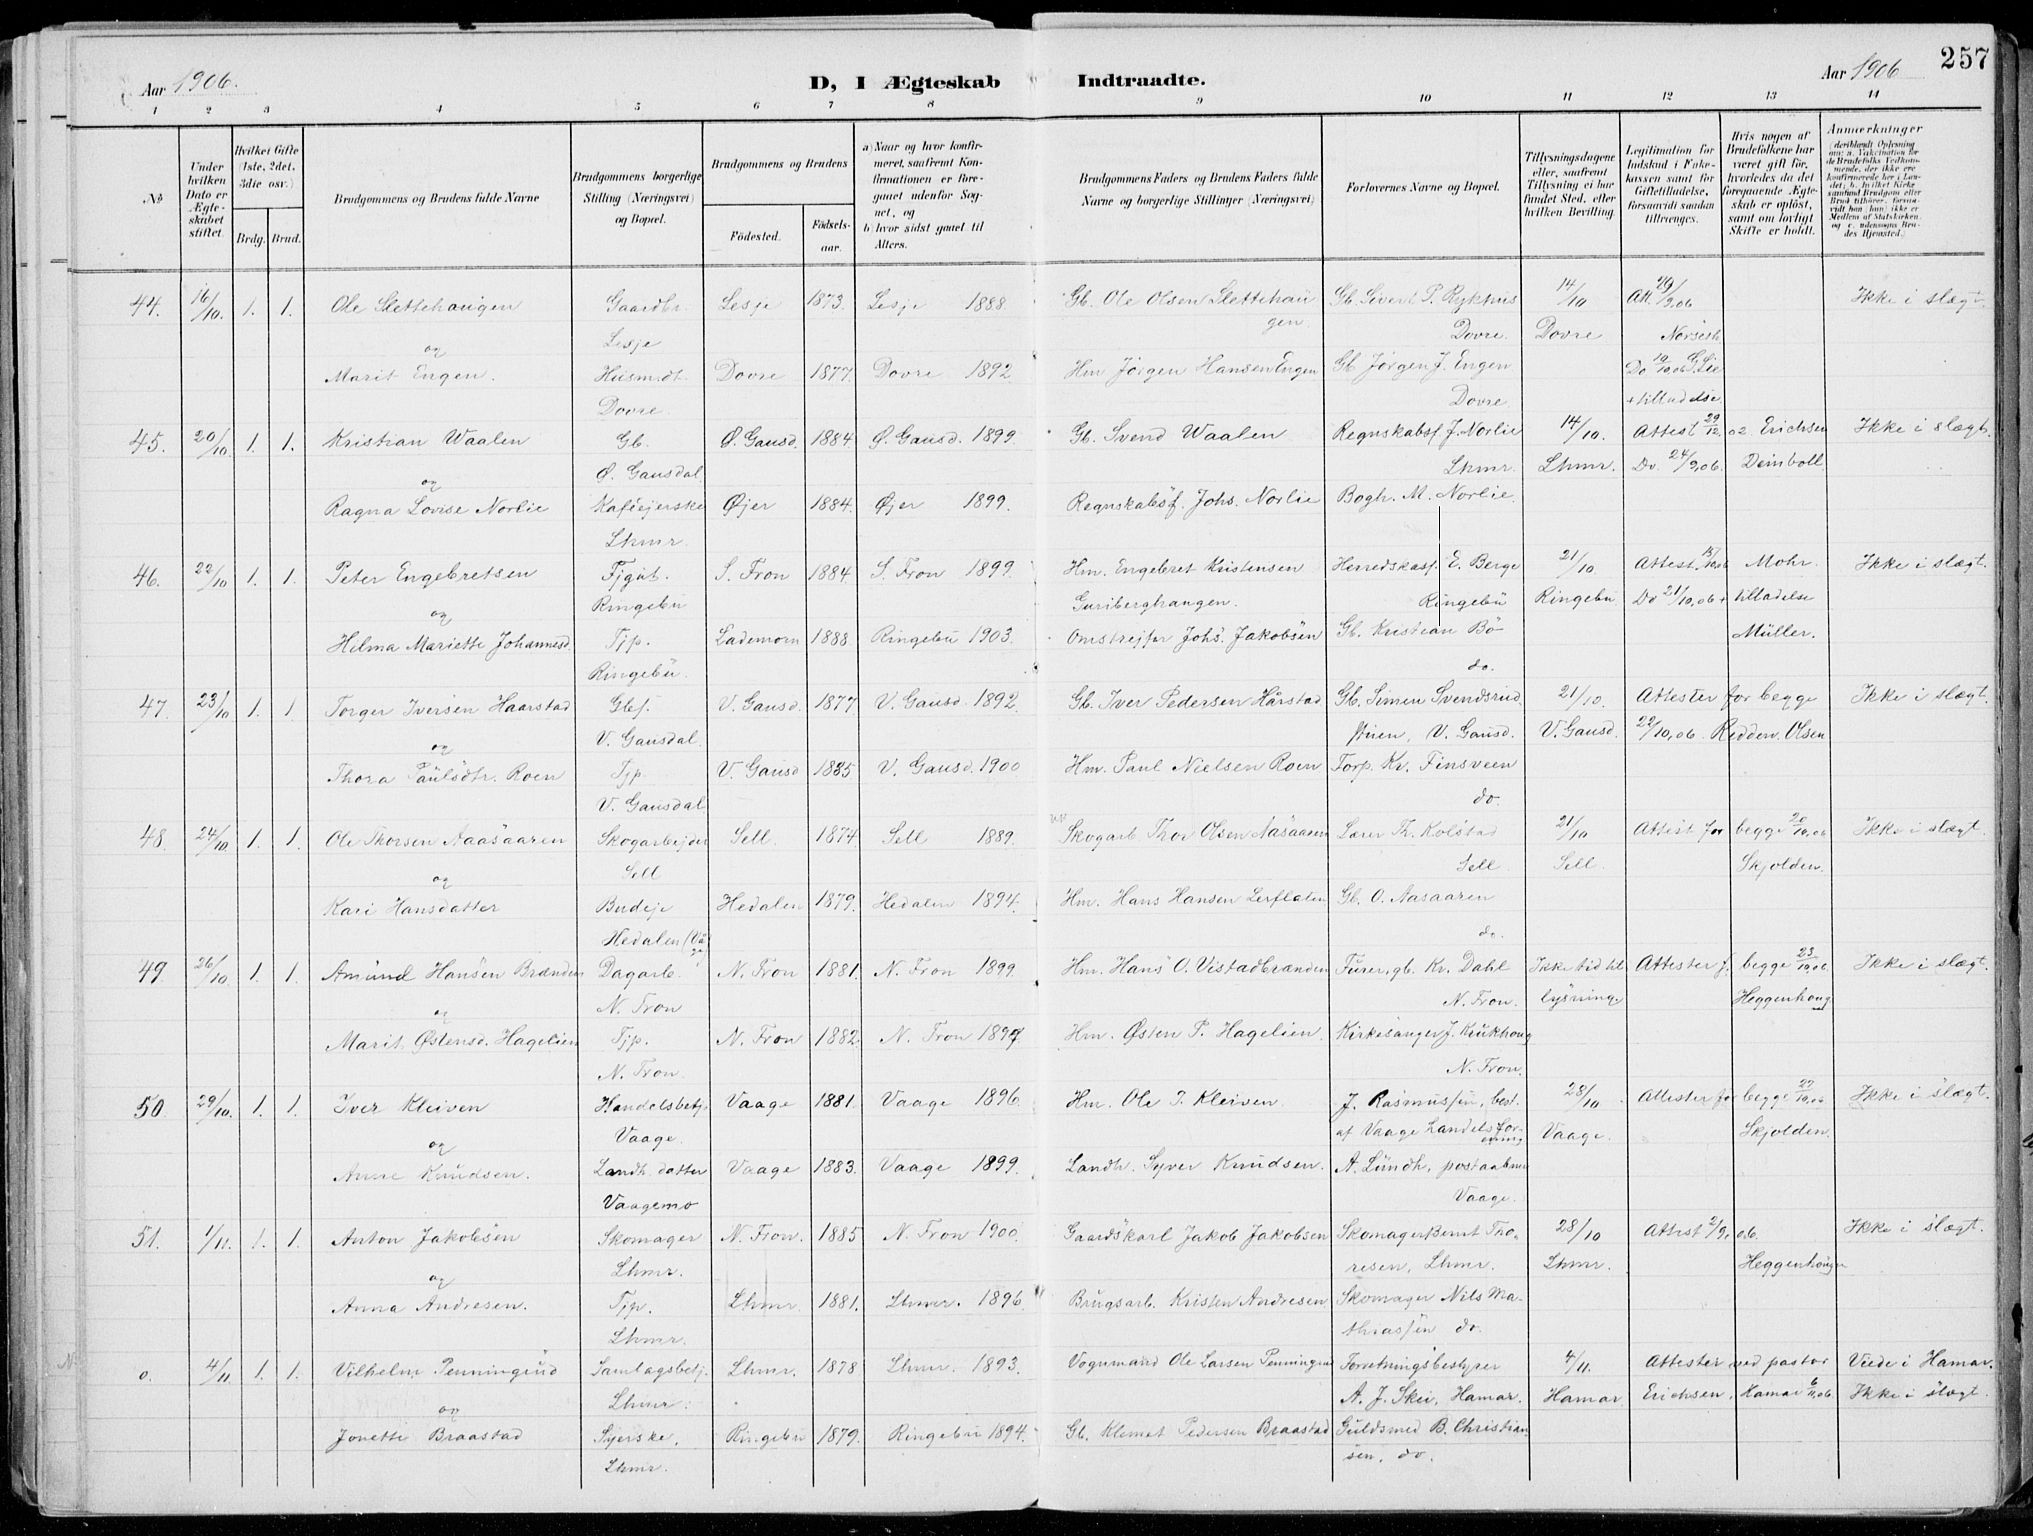 Aar 1906.
D, I Ægteskab Indtraadte.
Aar 1906
257
1 2 3 4 5 6 7 8 9 10 11 12 13 14
№
Under hvilken Dato er Ægteskabet stiftet.
Hvilket Gifte (1ste, 2det, 3die osv.)
Brdg. Brud.
Brudgommens og Brudens fulde Navne
Brudgommens borgerlige Stilling (Næringsvei) og Bopæl.
Brudgommens og Brudens
Födested.
Födselsaar.
a) Naar og hvor konfirmeret, saafremt Konfirmationen er foregaaet udenfor Sognet, og
b) hvor sidst gaaet til Alters.
Brudgommens Faders og Brudens Faders fulde Navne og borgerlige Stillinger (Næringsvei)
Forlovernes Navne og Bopæl.
Tillysningsdagene eller, saafremt Tillysning ei har fundet Sted, efter hvilken Bevilling.
Legitimation for Indskud i Enkekassen samt for Giftetilladelse, forsaavidt saadan tiltrænges.
Hvis nogen af Brudefolkene har været gift för, hvorledes da det foregaaende Ægteskab er oplöst, samt om lovligt Skifte er holdt.
Anmærkninger
44. 16/10. 1. 1. Ole Slettehaugen Gaardbr. Lesje 1873. Lesje 1888. Gb. Ole Olsen Slettehau Gb. Sivert P. Rykhus 14/10 Att. /9.06 Ikke i slægt.
og Lesje gen Dovre. Dovre
Marit Engen. Husm.dt. Dovre 1877. Dovre 1892 Hm Jørgen Hansen Engen Gb Jørgen J. Engen Do 19/10.06 G. Lie
Dovre. Dovre + tilladelse
45. 20/10. 1. 1. Kristian Waalen Gb. Ø. Gausd. 1884. Ø. Gausd. 1899. Gb. Svend Waalen Regnskabsf. J. Norlie 14/10. Attest 29/12.02. Erichsen Ikke i slægt.
og Ø. Gausdal. Lhmr. Lhmr. Do. 24/9.06. Deinboll
Ragna Lovise Norlie Kaféejerske Øjer 1884. Øjer 1899. Regnskabsf. Johs. Norlie Bogh. M. Norlie.
Lhmr.
46. 22/10 1. 1. Peter Engebretsen Tjgut. S. Fron 1884 S. Fron 1899. Hm. Engebret Kristensen Herredskasf. E. Berge 21/10 Attest. 15/10.06 Mohr. Ikke i slægt.
og Ringebu Guriberghaugen. Ringebu Ringebu Do 21/10.06 + tilladelse
Helma Mariette Johannesd. Tjp. Lademoen 1888. Ringebu 1903. Omstrejfer Johs. Jakobsen Gb. Kristian Bö Müller.
Ringebu. do.
47. 23/10 1. 1. Torger Iversen Haarstad Gbs. V. Gausd. 1877 V. Gausd. 1892. Gb. Iver Pedersen Hårstad Gb. Simen Svendsrud 21/10. Attester for begge Ikke i slægt.
og V. Gausdal. stuen, V. Gausd. V. Gausd. 22/10.06. Redden Olsen
Thora Paulsdtr. Roen Tjp. V. Gausd 1885 V. Gausd. 1900 Hm. Paul Nielsen Roen Torp. Kr. Finsveen
V. Gausdal do.
48. 24/10. 1. 1. Ole Thorsen Aasaaren Skogarbejder Sell. 1874. Sell 1889. Skogarb Thor Olsen Aasaaren Lærer Th. Kolstad 21/10 Attest for begge 20/10.06 Ikke i slægt.
og Sell Sell Sell. Skjolden.
Kari Hansdatter Budeje Hedalen 1879. Hedalen 1894. Hm. Hans Hansen Lerflaten Gb. O. Aasaaren
Hedalen (Våge) do.
49. 26/10. 1. 1. Amund Hansen Brænden Dagarb. N. Fron 1881. N. Fron 1899. Hm. Hans O. Vistadbrænden Furer, gb. Kr. Dahl Ikke tid til Attester f. begge 23/10.06. Ikke i slægt.
og N. Fron N. Fron. lysning. Heggenhaug
Marit Østensd. Hagelien Tjp. N. Fron 1882. N. Fron 1897 Hm. Østen P. Hagelien. Kirkesanger J. Kiukhaug
N. Fron. N. Fron.
50 29/10. 1. 1. Iver Kleiven Handelsbetj. Vaage 1881. Vaage 1896. Hm. Ole I. Kleiven J. Rasmussen, best. 28/10 Attester for begge 27/10.06 Ikke i slægt.
og Vaage. af Vaage Landelsforening Vaage. Skjolden.
Anne Knudsen. Landh. datter Vaage 1883. Vaage 1899. Landh. Syver Knudsen. A. Lundh, postaabner
Vaagemo Vaage.
51. 1/11. 1. 1. Anton Jakobsen Skomager N. Fron. 1885 N. Fron 1900. Gaardskarl Jakob Jakobsen Skomager Bernt Tho- 28/10 Attest 2/9.06. Ikke i slægt.
og Lhmr. resen, Lhmr. Lhmr. Heggenhougen
Anna Andresen. Tjp. Lhmr. 1881. Lhmr. 1896. Brugsarb. Kristen Andresen Skomager Nils Ma-
Lhmr. thiassen do.
0. 4/11 1. 1. Vilhelm Penningrud Samlagsbetj. Lhmr. 1878 Lhmr. 1893. Vognmand Ole Larsen Penningrud Forretningsbestyrer 4/11. Attester ved pastor Viede i Hamar.
og Lhmr. A. J. Skei, Hamar. Hamar Erichsen, Hamar 6/11.06. Ikke i slægt.
Jonette Braastad Syerske, Ringebu 1879. Ringebu 1894. Gb. Klemet Pedersen Braastad Guldsmed B. Christian
Lhmr. sen, do.